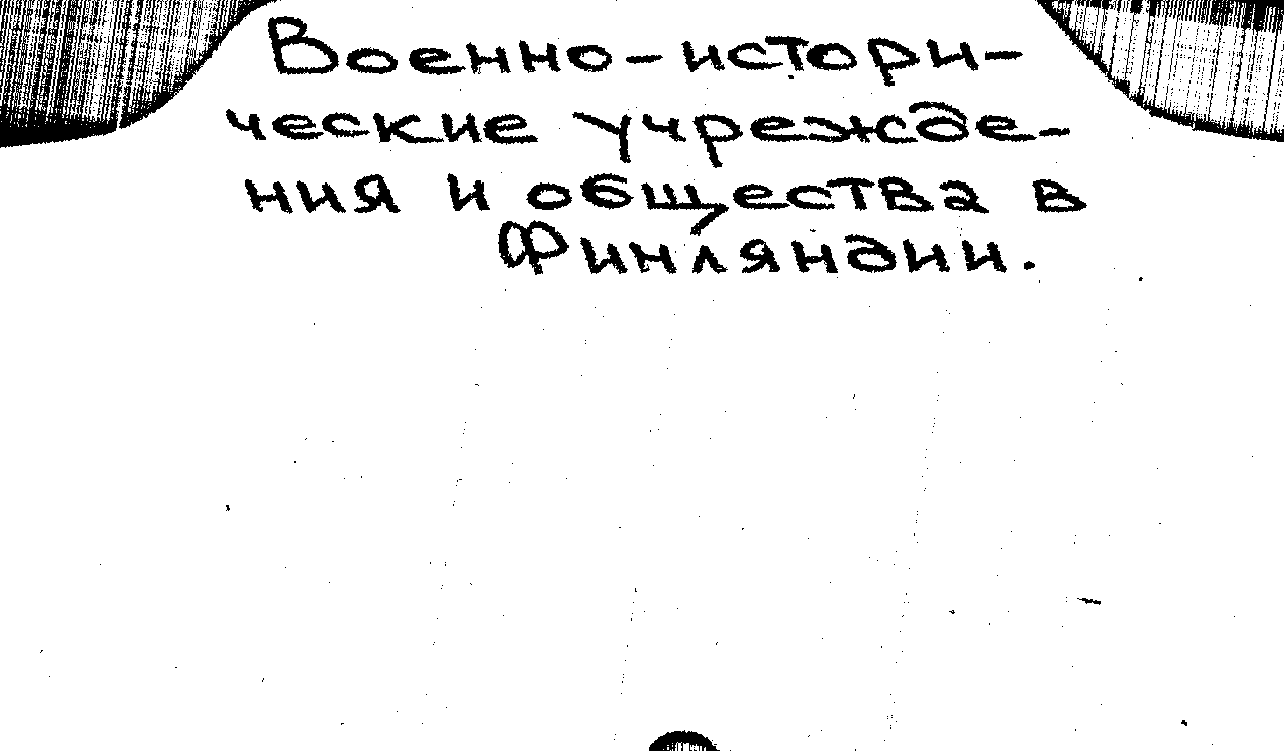 Военно-истори-
ческие учрежде-
ния и общества в
Финляндии.